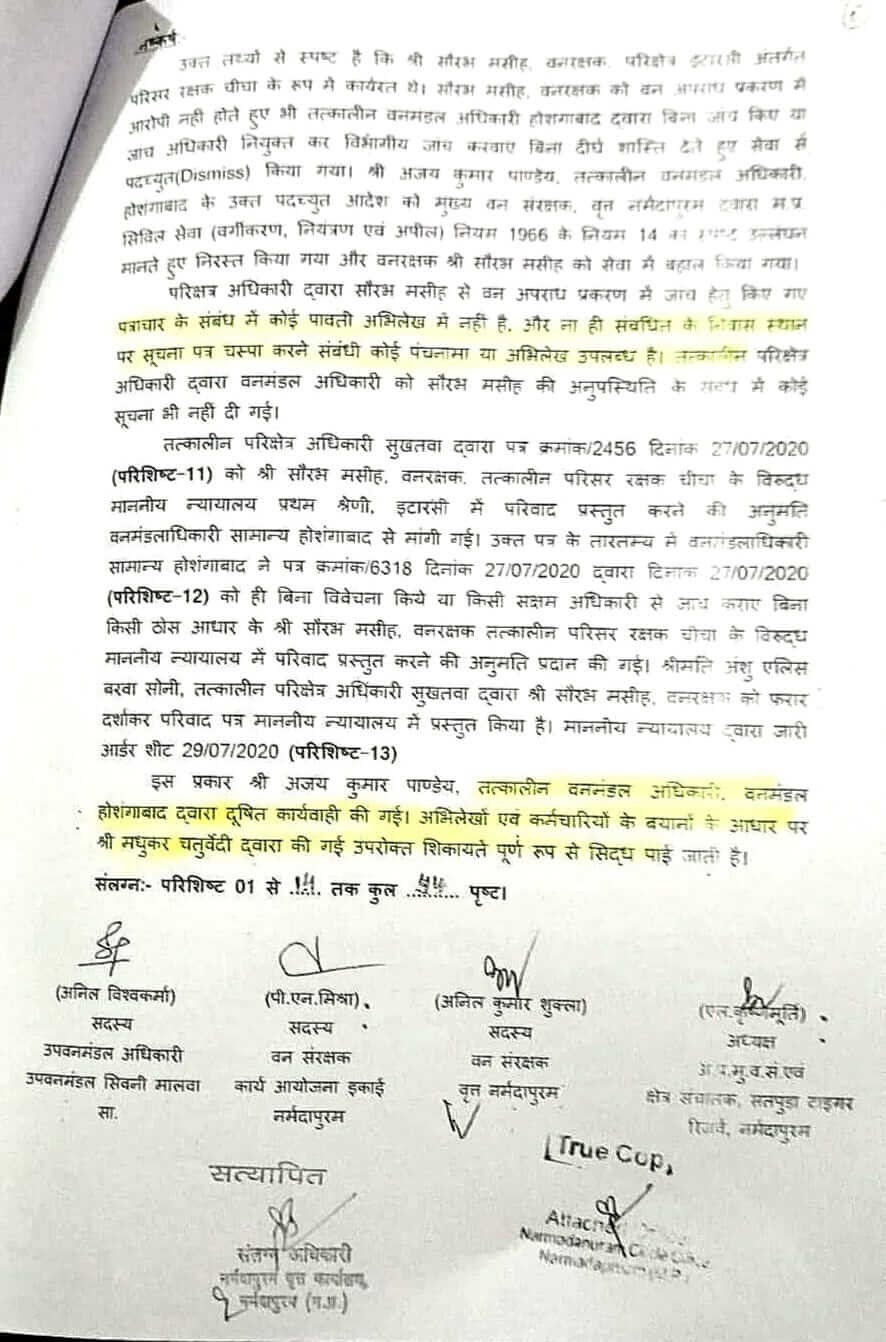 निष्कर्ष:-
उक्त तथ्यों से स्पष्ट है कि श्री सौरभ मसीह, वनरक्षक, परिक्षेत्र इटारसी अंतर्गत
परिसर रक्षक चीचा के रूप में कार्यरत थे। सौरभ मसीह, वनरक्षक को वन अपराध प्रकरण में
आरोपी नही होते हुए भी तत्कालीन वनमंडल अधिकारी होशगाबाद द्वारा बिना जांच किए या
जांच अधिकारी नियुक्त कर विभागीय जाच करवाए बिना दीर्घ शास्ति देते हुए सेवा से
पदच्युत(Dismiss) किया गया। श्री अजय कुमार पाण्डेय, तत्कालीन वनमंडल अधिकारी,
होशंगाबाद के उक्त पदच्युत आदेश को मुख्य वन संरक्षक, वृत्त नर्मदापुरम द्वारा म.प्र.
सिविल सेवा (वर्गीकरण, नियंत्रण एवं अपील) नियम 1966 के नियम 14 का स्पष्ट उल्लंघन
मानते हुए निरस्त किया गया और वनरक्षक श्री सौरभ मसीह को सेवा में बहाल किया गया।
परिक्षत्र अधिकारी द्वारा सौरभ मसीह से वन अपराध प्रकरण में जाच हेतु किए गए
पत्राचार के संबंध में कोई पावती अभिलेख में नहीं है, और ना ही संबधित के निवास स्थान
पर सूचना पत्र चस्पा करने संबंधी कोई पंचनामा या अभिलेख उपलब्ध है। तत्कालीन परिक्षेत्र
अधिकारी द्वारा वनमंडल अधिकारी को सौरभ मसीह की अनुपस्थिति के संबंध में कोई
सूचना भी नहीं दी गई।
तत्कालीन परिक्षेत्र अधिकारी सुखतवा द्वारा पत्र क्रमांक/2456 दिनांक 27/07/2020
(परिशिष्ट-11) को श्री सौरभ मसीह, वनरक्षक, तत्कालीन परिसर रक्षक चीचा के विरुद्ध
माननीय न्यायालय प्रथम श्रेणी, इटारसी में परिवाद प्रस्तुत करने की अनुमति
वनमंडलाधिकारी सामान्य होशंगाबाद से मांगी गई। उक्त पत्र के तारतम्य में वनमंडलाधिकारी
सामान्य होशंगाबाद ने पत्र क्रमांक/6318 दिनांक 27/07/2020 द्वारा दिनांक 27/07/2020
(परिशिष्ट-12) को ही बिना विवेचना किये या किसी सक्षम अधिकारी से जाच कराए बिना
किसी ठोस आधार के श्री सौरभ मसीह, वनरक्षक तत्कालीन परिसर रक्षक चीचा के विरुद्ध
माननीय न्यायालय में परिवाद प्रस्तुत करने की अनुमति प्रदान की गई। श्रीमति अंशु एलिस
बरवा सोनी, तत्कालीन परिक्षेत्र अधिकारी सुखतवा द्वारा श्री सौरभ मसीह, वनरक्षक को फरार
दर्शाकर परिवाद पत्र माननीय न्यायालय में प्रस्तुत किया है। माननीय न्यायालय द्वारा जारी
आर्डर शीट 29/07/2020 (परिशिष्ट-13)
इस प्रकार श्री अजय कुमार पाण्डेय, तत्कालीन वनमंडल अधिकारी, वनमंडल
होशंगाबाद द्वारा दूषित कार्यवाही की गई। अभिलेखों एवं कर्मचारियों के बयानों के आधार पर
श्री मधुकर चतुर्वेदी द्वारा की गई उपरोक्त शिकायते पूर्ण रूप से सिद्ध पाई जाती है।
संलग्न:- परिशिष्ट 01 से तक कुल पृष्ट।
(अनिल विश्वकर्मा)
सदस्य
उपवनमंडल अधिकारी
उपवनमंडल सिवनी मालवा
सा.
(पी.एन.मिश्रा)
सदस्य
वन संरक्षक
कार्य आयोजना इकाई
नर्मदापुरम
(अनिल कुमार शुक्ला)
सदस्य
वन संरक्षक
वृत्त नर्मदापुरम
(एल.कृष्णमूर्ति)
अध्यक्ष
अ.प्र.मु.व.सं.एवं
क्षेत्र संचालक, सतपुडा टाइगर
रिजर्व, नर्मदापुरम
True Copy
सत्यापित
संलग्न अधिकारी
नर्मदापुरम वृत्त कार्यालय,
नर्मदापुरम (म.प्र.)